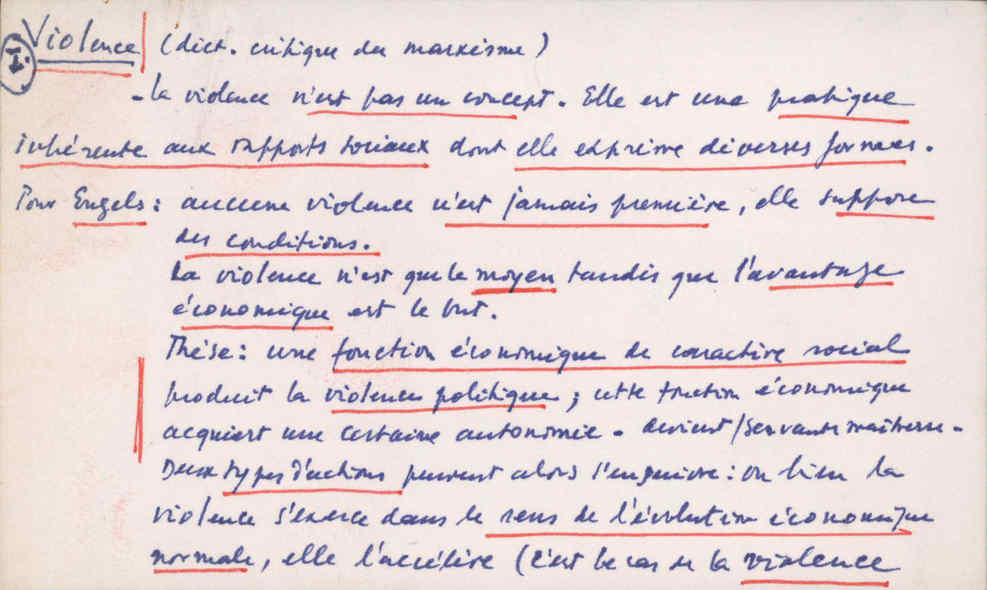 I. Violence (dict. critique du marxisme)
- La violence n'est pas un concept. Elle est une pratique
inhérente aux rapports sociaux dont elle exprime diverses formes.
Pour Engels : aucune violence n'est jamais première, elle suppose
des conditions.
La violence n'est que le moyen tandis que l'avantage
économique est le but.
Thèse : une fonction économique de caractère social
produit la violence politique ; cette fonction économique
acquiert une certaine autonomie - devient / servante maîtresse -
Deux types d'actions peuvent alors s'ensuivre : ou bien la
violence s'exerce dans le sens de l'évolution économique
normale, elle l'accélère (c'est le cas de la violence